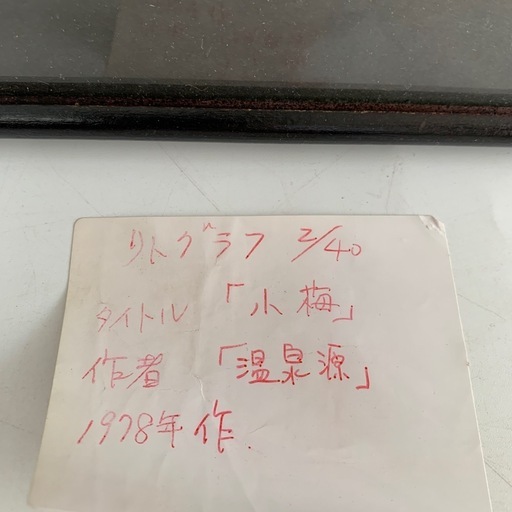 リトグラフ 2/40
タイトル「小梅」
作者 「温泉源」
1978年作.